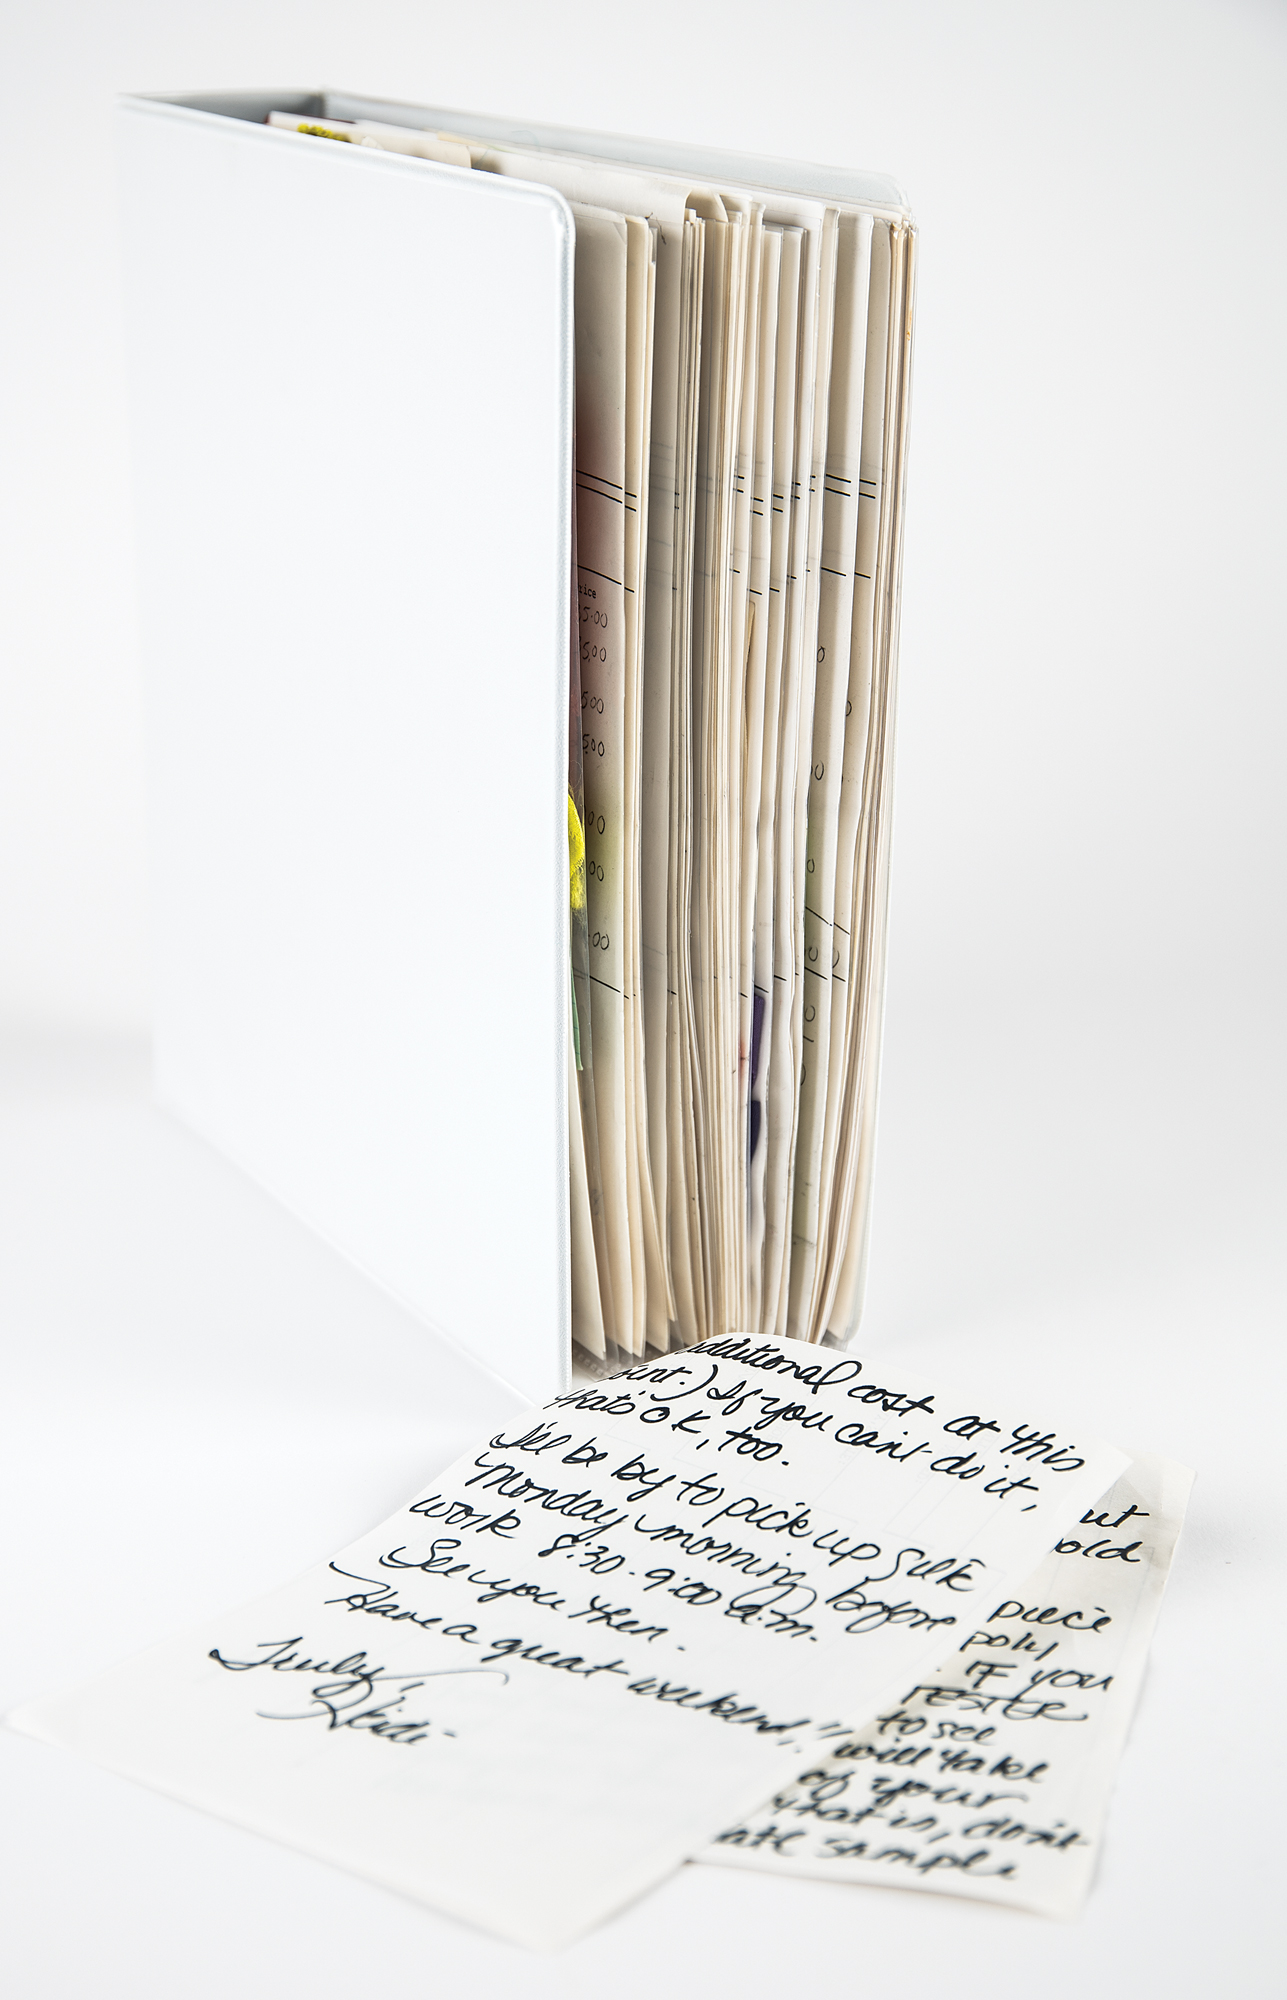 rice
5.00
5.00
500
500
00
00
00
additional cost at this
point.) If you can't do it,
that's OK, too.
I'll be by to pick up silk
Monday morning before
work 8:30-9:00 a.m.
See you then.
Have a great weekend!!
Truly,
Heidi
out
old
piece
poly
. IF you
TESTER
to see
will take
of your
that is, don't
sample